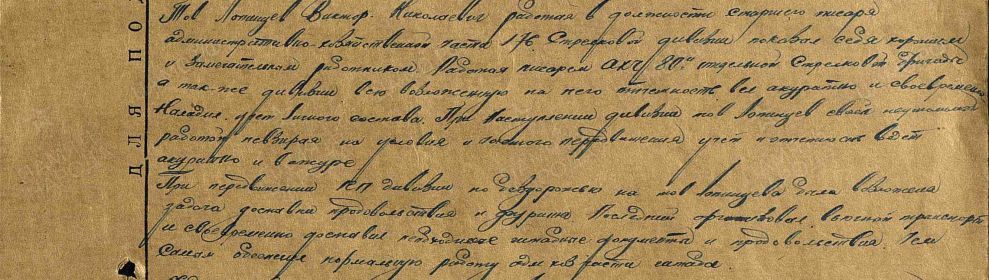 Тов Лотицев Виктор. Николаевич работая в должности старшего писаря
административно-хозяйственной части 176 Стрелковой дивизии показал себя хорошим
и замечательным работником. Работая писарем АХЧ 80й отдельной Стрелковой бригады
а так-же дивизии всю возложенную на него отчетность вел акуратно и своевременно
Наладил учет личного состава. При наступлении дивизии тов Лотицев своей неутомимой
работой невзирая на условия и частого передвижения учет и отчетность ведет
акуратно и в ажуре.
При передвижении КП дивизии по бездорожью на тов Лотицева была возложена
задача доставки продовольствия и фуража. Последний организовал вьючной транспорт
и своевременно доставил необходимые штабные документы и продовольствия. Тем
самым обеспечил нормальную работу адм хоз части штадива.
ДЛЯ ПО